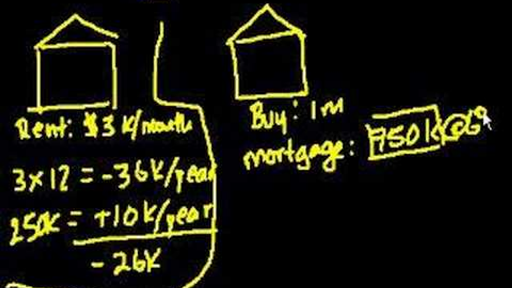 Rent: $3 K/month
3 x 12 = -36K/year
250K = +10K/year
-26K
Buy: 1m
mortgage: 750K@6%